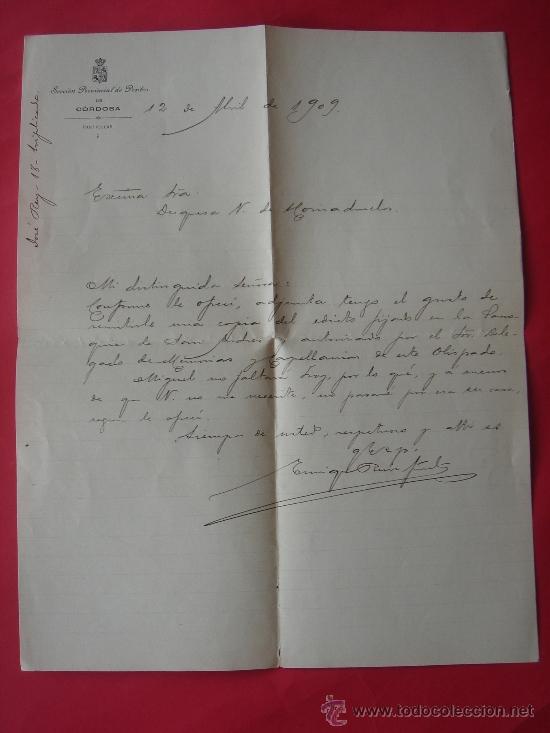 Sección Provincial de Pósitos
DE
CÓRDOBA
PARTICULAR
12 de Abril de 1909.
José Rey - 18 - triplicado
Excma Sra.
Duquesa V. de Hornachuelos.
Mi distinguida Señora:
Conforme le ofrecí, adjunta tengo el gusto de
remitirle una copia del edicto fijado en la Parro
quia de San Pedro y autorizado por el Sr. Dele
gado de Memorias y Capellanías de este Obispado.
Miguel no faltará hoy, por lo qué, y a menos
de que V. no me necesite, no pasaré por esa su casa,
según le ofrecí.
Siempre de usted, respetuoso y affo ss
q b s p.
Enrique
todocoleccion.net